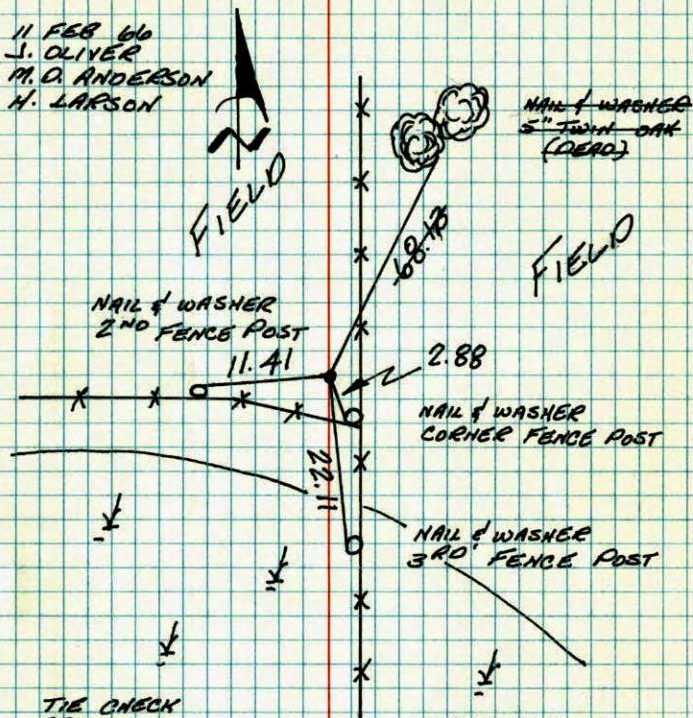 11 FEB 66
J. OLIVER
M.D. ANDERSON
H. LARSON
NAIL & WASHER
5" TWIN OAK
(DEAD)
FIELD
FIELD
68.13
NAIL & WASHER
2ND FENCE POST
11.41
2.88
NAIL & WASHER
CORNER FENCE POST
22.11
NAIL & WASHER
3RD FENCE POST
TIE CHECK